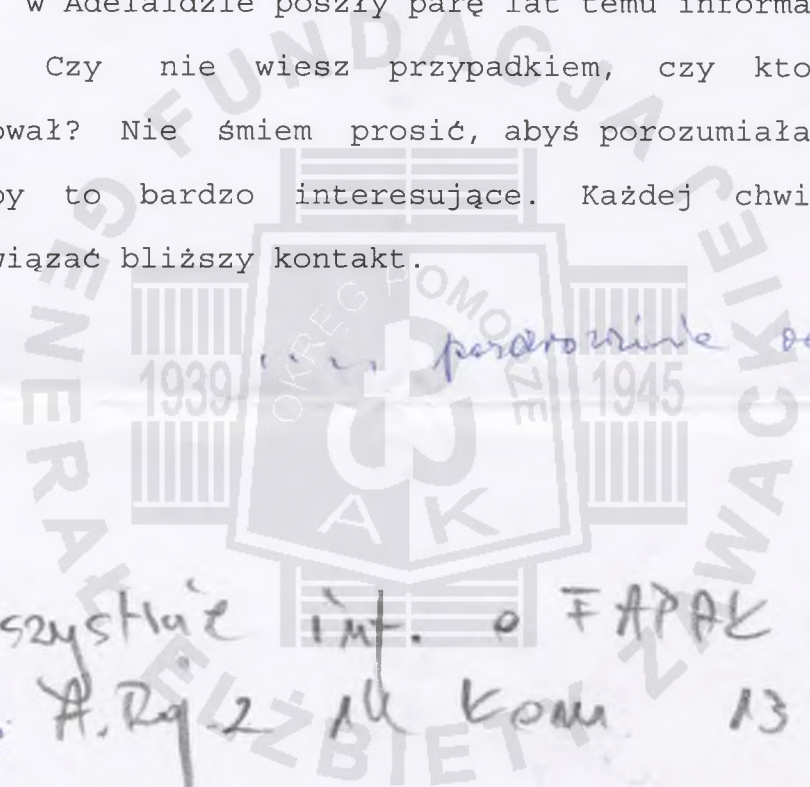 w Adelaidzie poszły parę lat temu informa
Czy nie wiesz przypadkiem, czy kto
ował? Nie śmiem prosić, abyś porozumiała
by to bardzo interesujące. Każdej chwi
wiązać bliższy kontakt.
.... pozdrowienia
szystkie inf. o FAPAK
A. 13
FUNDACJA GENERAŁ ELŻBIETY ZAWACKIEJ
OKRĘG POMORZE
1939 1945
AK